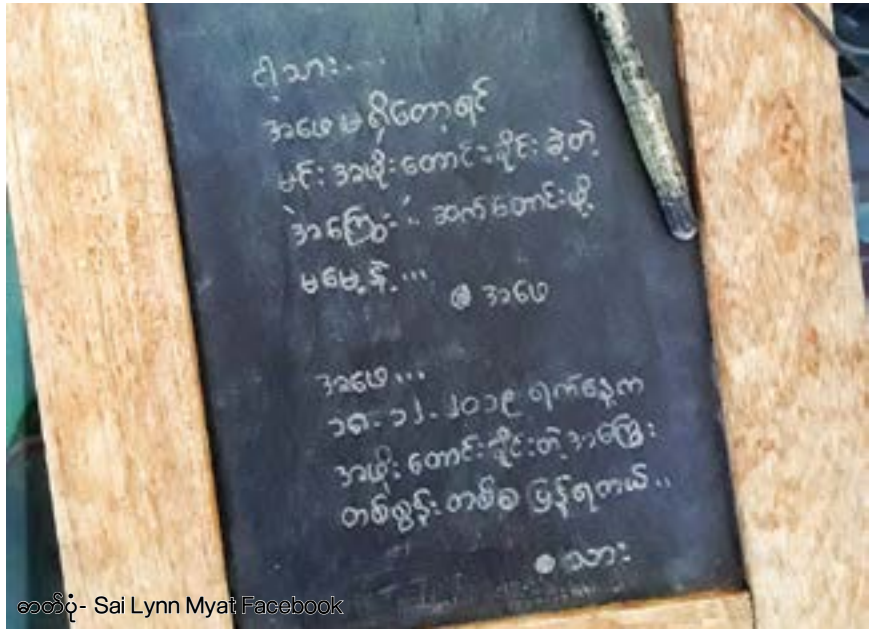 ငါ့သား...
အဖေ မရှိတော့ရင်
မင်း အဖိုး တောင်းခိုင်းခဲ့တဲ့
အကြွေး ဆက်တောင်းဖို့
မမေ့နဲ့...
အဖေ
အဖေ...
၁၈-၁၂-၂၀၁၉ ရက်နေ့က
အဖိုး တောင်းခိုင်းတဲ့ အကြွေး
တစ်စွန်း တစ်စ ပြန်ရတယ်..
သား
ဓာတ်ပုံ- Sai Lynn Myat Facebook